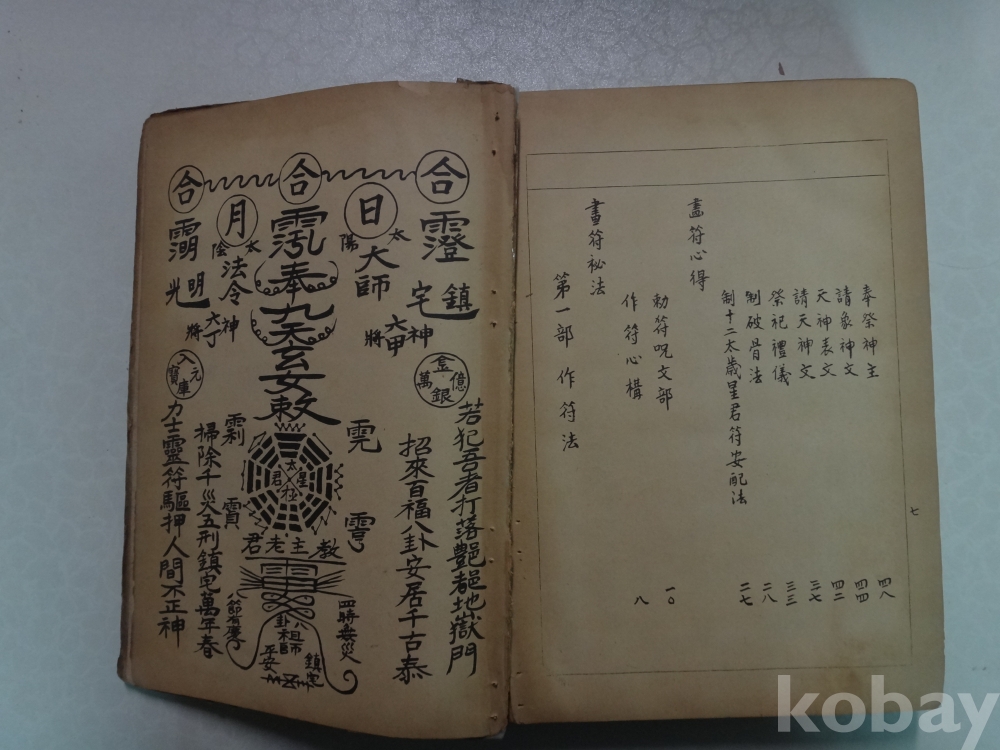 合 合 合
月
日
太陰
太陽
法令
大師
奉
九天玄女敕
明光
鎮宅
六丁神將
六甲神將
元入寶庫
金銀億萬
力士靈符驅押人間不正神
掃除千災五刑鎮宅萬年春
招來百福八卦安居千古泰
太極
星君
教主老君
八節有慶
四時無災
八卦祖師
鎮宅
平安
畫符祕法
第一部 作符法
作符心構 八
勅符呪文部 一〇
畫符心得
制十二太歲星君符安配法 二七
制破骨法 二八
祭祀禮儀 三三
請天神文 三七
天神表文 四二
請象神文 四四
奉祭神主 四八
七
kobay